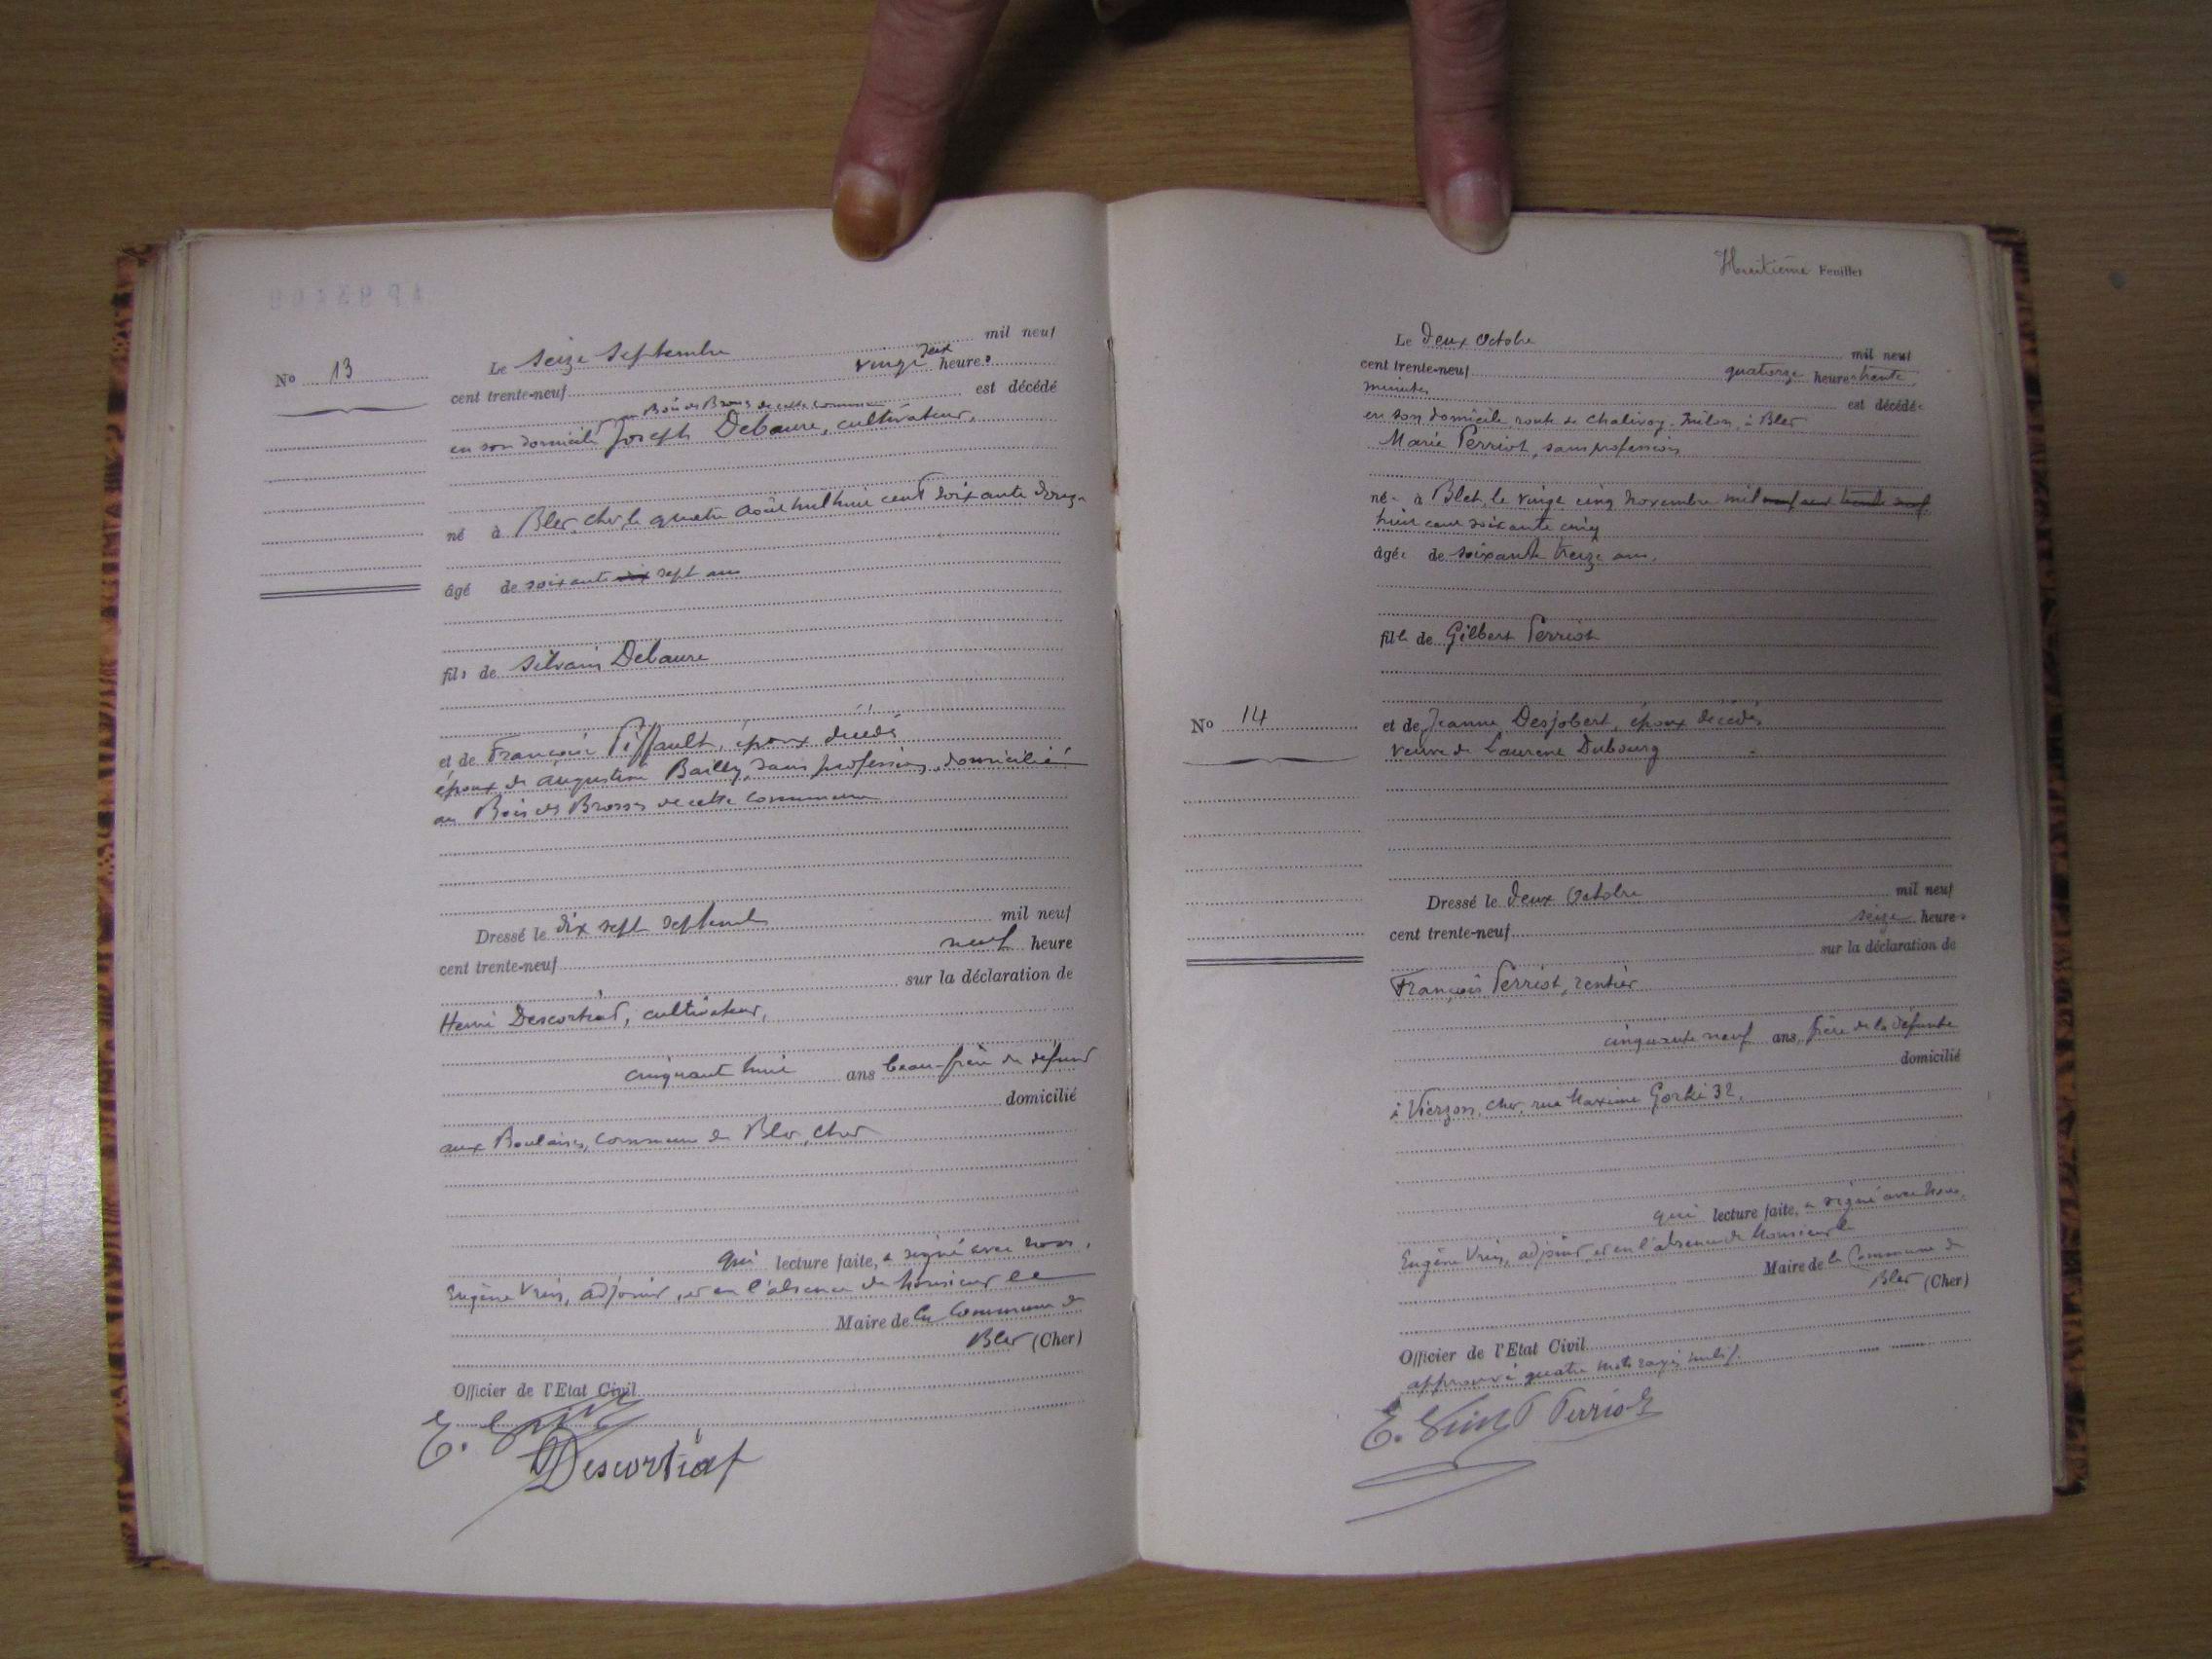 No 13
Le Seize Septembre mil neuf
cent trente-neuf vingt deux heures
est décédé
au Bois des Brosses de cette commune
en son domicile Joseph Debaure, cultivateur,
né à Blet, Cher, le quatre août mil huit cent soixante douze
âgé de soixante dix sept ans
fils de Silvain Debaure
et de Françoise Piffault, époux décédés
époux de Augustine Bailly, sans profession, domiciliée
au Bois des Brosses de cette commune
Dressé le dix sept septembre mil neuf
cent trente-neuf neuf heure
sur la déclaration de
Henri Descortiat, cultivateur,
cinquante huit ans beau-frère du défunt
domicilié
aux Boulaises, commune de Blet, Cher
qui lecture faite, a signé avec nous,
Eugène adjoint, et en l'absence de Monsieur le
Maire de la Commune de
Blet (Cher)
Officier de l'Etat Civil
Descortiat
Huitième Feuillet
No 14
Le deux Octobre mil neuf
cent trente-neuf quatorze heures trente
minutes est décédée
en son domicile route de Chalivoy-Milon, à Blet
Marie Perriot, sans profession
née à Blet, le vingt cinq novembre mil neuf cent trente neuf
huit cent soixante cinq
âgée de soixante treize ans,
fille de Gilbert Perriot
et de Jeanne Desjobert, époux décédés,
veuve de Laurent Dubourg
Dressé le deux Octobre mil neuf
cent trente-neuf seize heures
sur la déclaration de
François Perriot, rentier
cinquante neuf ans, frère de la défunte
domicilié
à Vierzon, Cher, rue Maxime Gorki 32,
qui lecture faite, a signé avec nous,
Eugène adjoint, et en l'absence de Monsieur le
Maire de la Commune de
Blet (Cher)
Officier de l'Etat Civil
approuvé quatre mots rayés nuls.
Perriot